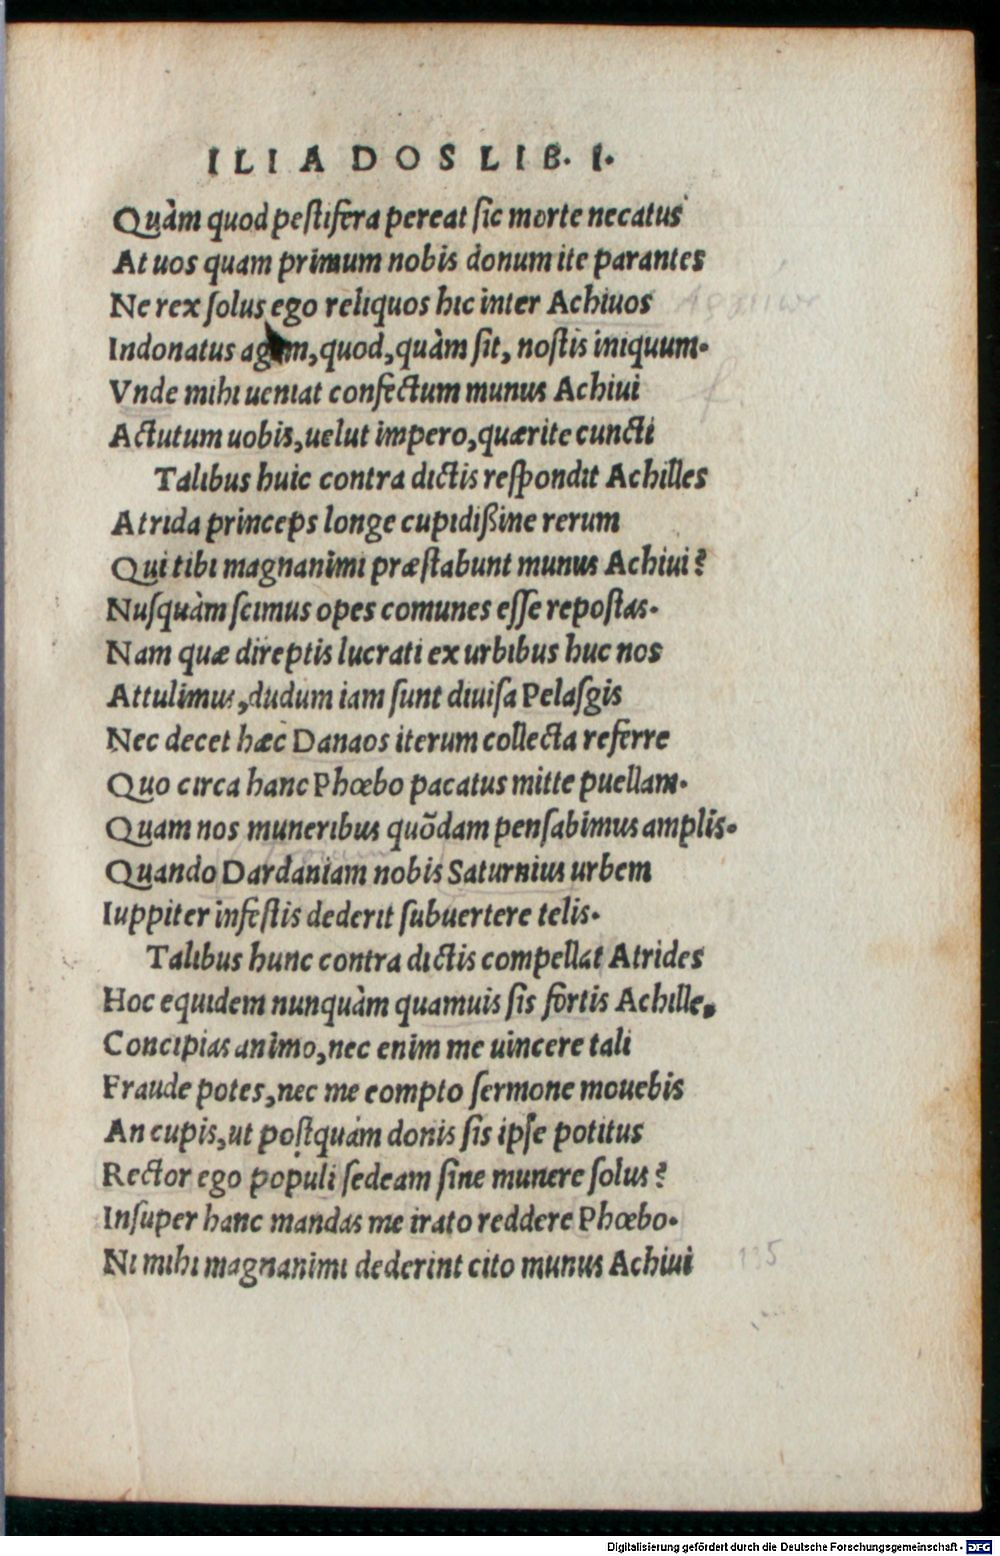 ILIADOS LIB. I.
Quàm quod pestifera pereat sic morte necatus
At uos quam primum nobis donum ite parantes
Ne rex solus ego reliquos hic inter Achiuos
Indonatus agam, quod, quàm sit, nostis iniquum.
Vnde mihi ueniat confectum munus Achiui
Actutum uobis, uelut impero, quærite cuncti
Talibus huic contra dictis respondit Achilles
Atrida princeps longe cupidißine rerum
Qui tibi magnanimi præstabunt munus Achiui?
Nusquàm scimus opes comunes esse repostas.
Nam quæ direptis lucrati ex urbibus huc nos
Attulimus, dudum iam sunt diuisa Pelasgis
Nec decet hæc Danaos iterum collecta referre
Quo circa hanc Phœbo pacatus mitte puellam.
Quam nos muneribus quõdam pensabimus amplis.
Quando Dardaniam nobis Saturnius urbem
Iuppiter infestis dederit subuertere telis.
Talibus hunc contra dictis compellat Atrides
Hoc equidem nunquàm quamuis sis fortis Achille,
Concipias animo, nec enim me uincere tali
Fraude potes, nec me compto sermone mouebis
An cupis, ut postquàm donis sis ipse potitus
Rector ego populi sedeam sine munere solus?
Insuper hanc mandas me irato reddere Phœbo.
Ni mihi magnanimi dederint cito munus Achiui
135
Digitalisierung gefördert durch die Deutsche Forschungsgemeinschaft - DFG